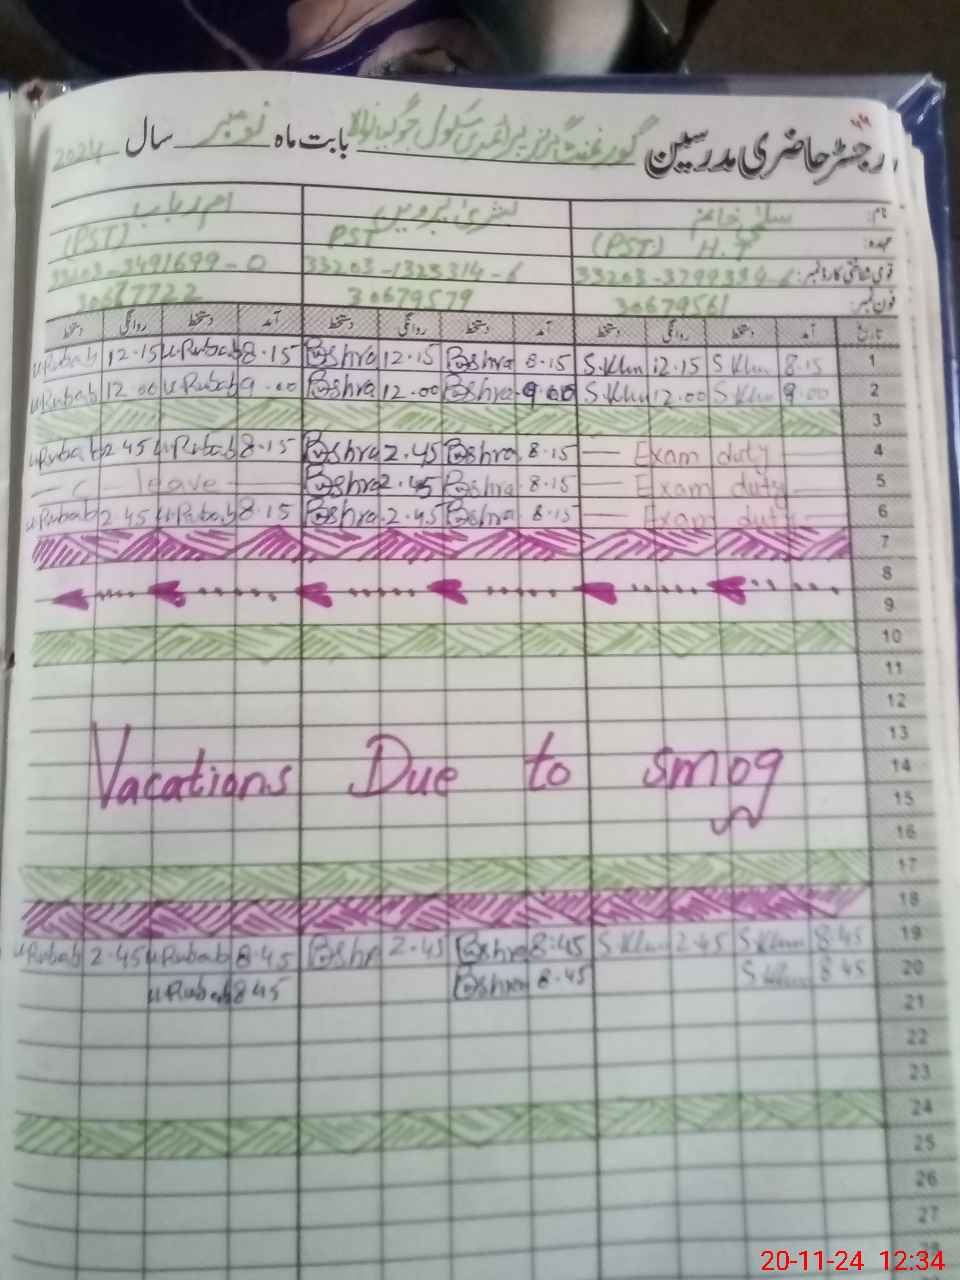 رجسٹر حاضری مدرسین گورنمنٹ گرلز پرائمری سکول بابت ماہ نومبر سال 2024
نام: سلمیٰ خانم بشریٰ پروین ام رباب
عہدہ: (PST) H.T PST (PST)
قومی شناختی کارڈ نمبر: 33203-1325314-6 33203-3491699-0
فون نمبر: 30679561 30679579 30677722
تاریخ آمد دستخط روانگی دستخط آمد دستخط روانگی دستخط آمد دستخط روانگی دستخط
1 8.15 S.Khn 12.15 S.Khn 8.15 Bshra 12.15 Bshra 8.15 u.Rubab 12.15 u.Rubab
2 9.00 S.Khn 12.00 S.Khn 9.00 Bshra 12.00 Bshra 9.00 u.Rubab 12.00 u.Rubab
3
4 Exam duty 8.15 Bshra 2.45 Bshra 8.15 u.Rubab 2.45 u.Rubab
5 Exam duty 8.15 Bshra 2.45 Bshra c leave
6 Exam duty 8.15 Bshra 2.45 Bshra 8.15 u.Rubab 2.45 u.Rubab
7
8
9
10
11
12
13
Vacations Due to smog 14
15
16
17
18
19 8.45 S.Khn 2.45 S.Khn 8.45 Bshra 2.45 Bshr 8.45 u.Rubab 2.45 u.Rubab
20 8.45 S.Khn 8.45 Bshra 8.45 u.Rubab
21
22
23
24
25
26
27
28
20-11-24 12:34